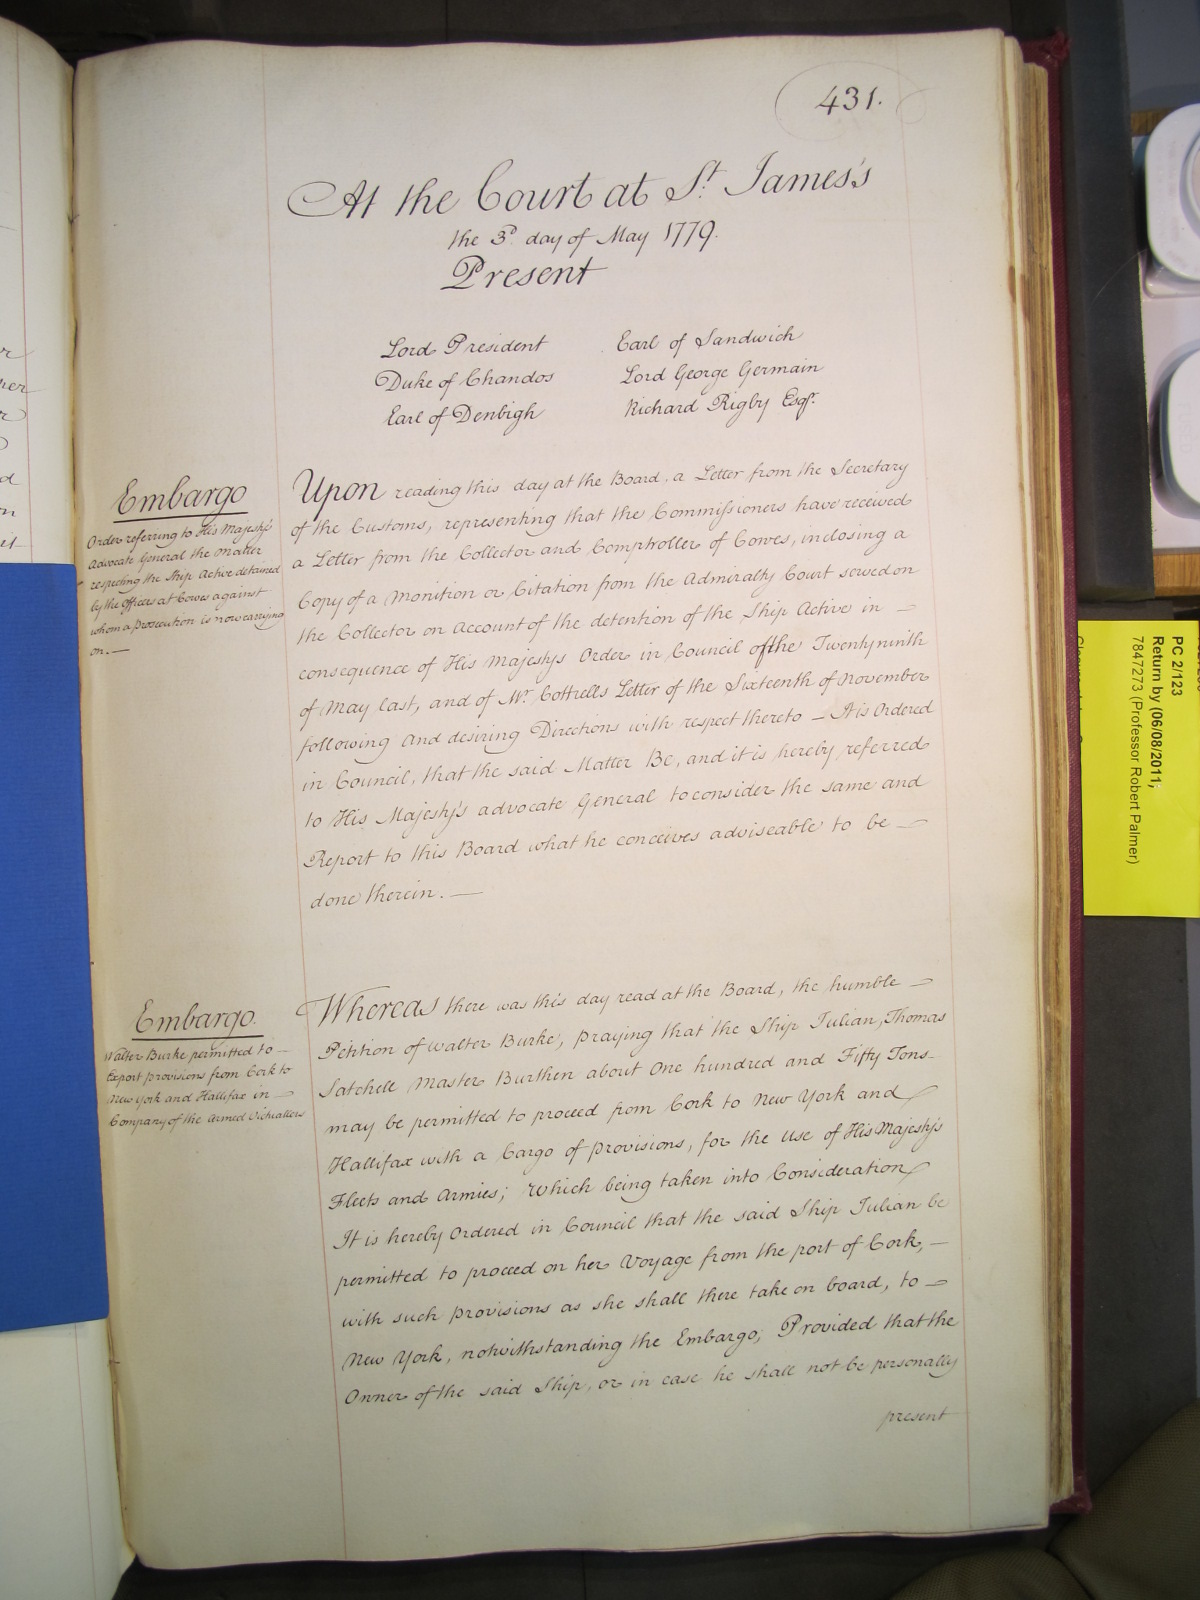 431.
At the Court at St. James's
the 3d. day of May 1779.
Present
Lord President
Duke of Chandos
Earl of Denbigh
Earl of Sandwich
Lord George Germain
Richard Rigby Esqr.
Embargo
Order referring to His Majesty's
Advocate General the matter
respecting the Ship Active detained
by the Officers at Cowes against
whom a prosecution is now carrying
on. —
Upon reading this day at the Board, a Letter from the Secretary
of the Customs, representing that the Commissioners have received
a Letter from the Collector and Comptroller of Cowes, inclosing a
Copy of a Monition or Citation from the Admiralty Court served on
the Collector on Account of the detention of the Ship Active in —
consequence of His Majestys Order in Council of the Twenty ninth
of May last, and of Mr. Cottrells Letter of the Sixteenth of November
following and desiring Directions with respect thereto — It is Ordered
in Council, that the said Matter Be, and it is hereby referred
to His Majesty's Advocate General to consider the same and
Report to this Board what he conceives adviseable to be —
done therein. —
Embargo.
Walter Burke permitted to —
Export provisions from Cork to
New York and Hallifax in —
Company of the Armed Victuallers
Whereas there was this day read at the Board, the humble —
Petition of Walter Burke, praying that the Ship Julian, Thomas
Satchell Master Burthen about One hundred and Fifty Tons
may be permitted to proceed from Cork to New York and
Hallifax with a Cargo of provisions, for the Use of His Majesty's
Fleets and Armies; Which being taken into Consideration
It is hereby Ordered in Council that the said Ship Julian be
permitted to proceed on her Voyage from the port of Cork, —
with such provisions as she shall there take on board, to —
New York, notwithstanding the Embargo; Provided that the
Owner of the said Ship, or in case he shall not be personally
present
PC 2/123
Return by (06/08/2011;
7847273 (Professor Robert Palmer)